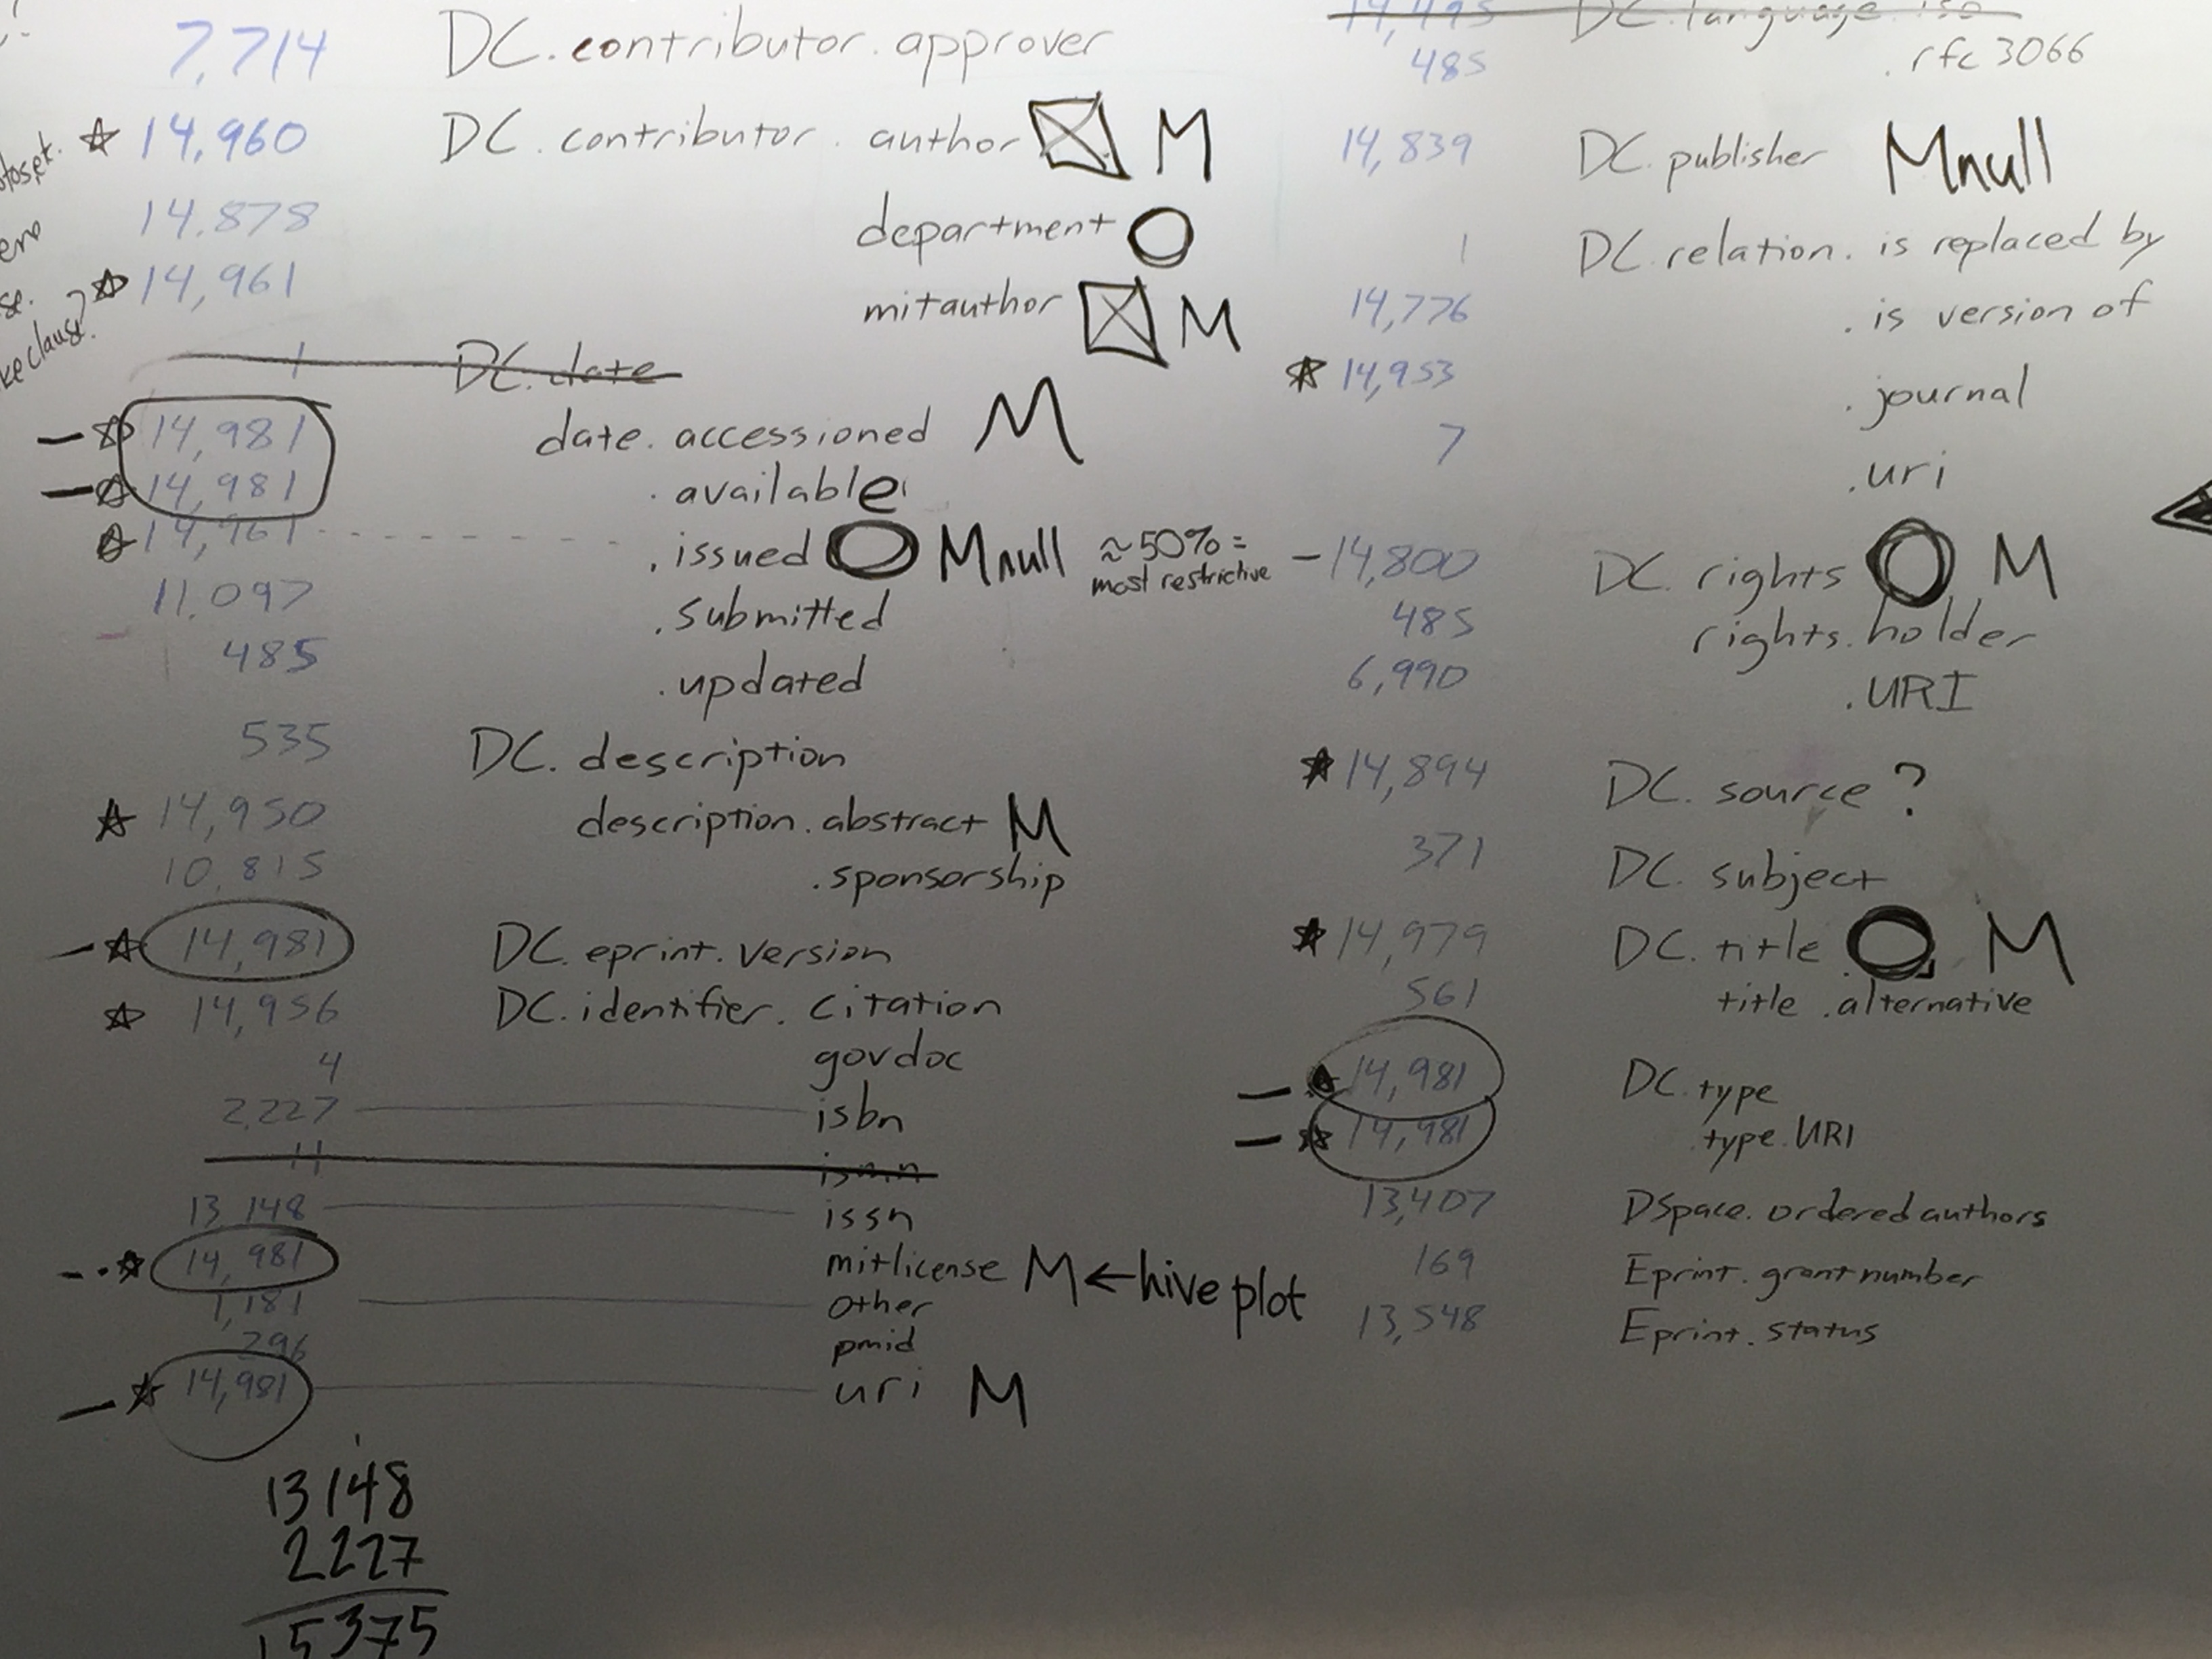 7,714 DC.contributor.approver
☆ 14,960 DC.contributor.author M
14,878 department
☆ 14,961 mitauthor M
ke clause?
1 DC.date
— ☆ 14,981 date.accessioned M
— ☆ 14,981 .available
☆ 14,961 .issued Mnull ≈50% =
most restrictive
11,097 .submitted
485 .updated
535 DC.description
☆ 14,950 description.abstract M
10,815 .sponsorship
— ☆ 14,981 DC.eprint.version
☆ 14,956 DC.identifier.citation
4 govdoc
2,227 isbn
11 ismn
13,148 issn
— ☆ 14,981 mitlicense M ← hive plot
1,181 other
296 pmid
— ☆ 14,981 uri M
13148
2227
15375
14,495 DC.language.iso
485 .rfc3066
14,839 DC.publisher Mnull
1 DC.relation.is replaced by
14,776 .is version of
☆ 14,953 .journal
7 .uri
— 14,800 DC.rights M
485 rights.holder
6,990 .URI
☆ 14,894 DC.source ?
371 DC.subject
☆ 14,979 DC.title M
561 title.alternative
— ☆ 14,981 DC.type
— ☆ 14,981 .type.URI
13,407 DSpace.orderedauthors
169 Eprint.grantnumber
13,548 Eprint.status